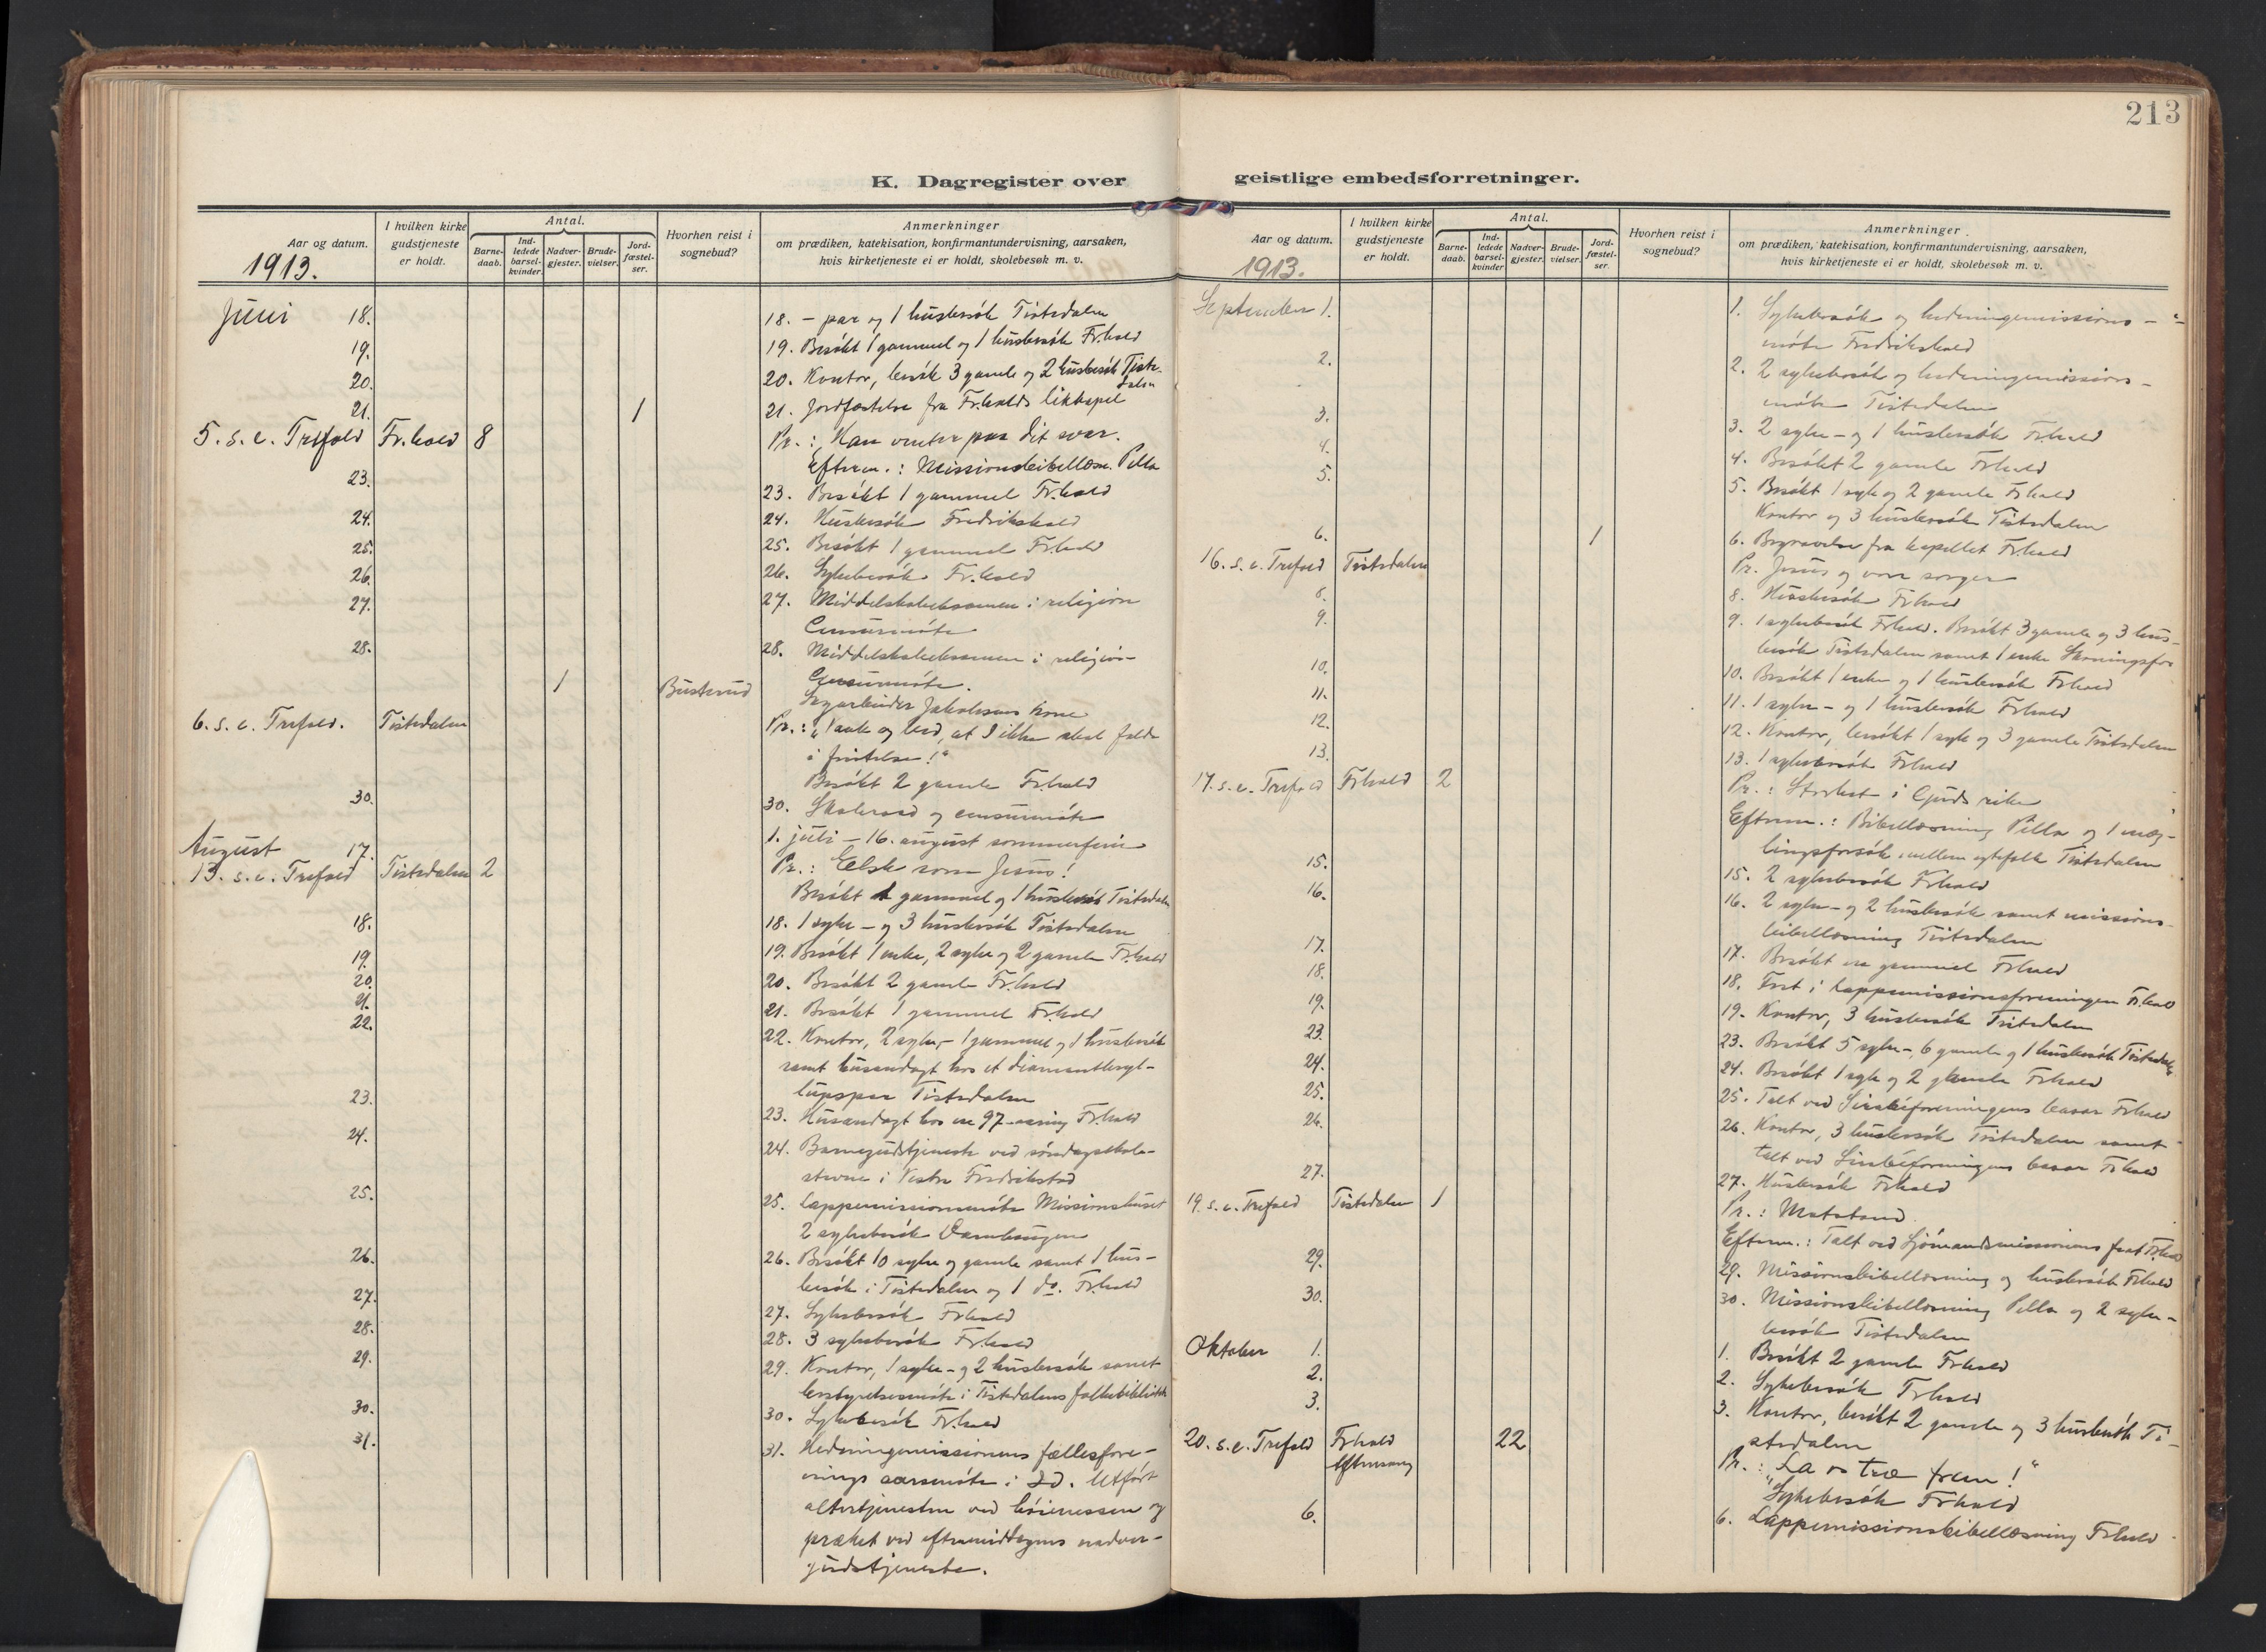 213
K. Dagregister over geistlige embedsforretninger.
Aar og datum.
1913.
I hvilken kirke gudstjeneste er holdt.
Antal.
Barne-daab.
Ind-ledede barsel-kvinder.
Nadver-gjester.
Brude-vielser.
Jord-fæstel-ser.
Hvorhen reist i sognebud?
Anmerkninger
om prædiken, katekisation, konfirmantundervisning, aarsaken,
hvis kirketjeneste ei er holdt, skolebesøk m. v.
Juni 18. 18. - par og 1 husbesök Tistedalen
19. 19. Besökt 1 gammel og 1 husbesök Fr.hald
20. 20. Kontor, besök 3 gamle og 2 husbesök Tiste-
dalen
21. 1 21. Jordfæstelse fra Fr.halds likkapel
5. s. e. Trefold Fr.hald 8 Pr.: Han venter paa dit svar.
Efterm.: Missionsbibellæsn. Pella
23. 23. Besökt 1 gammel Fr.hald
24. 24. Husbesök Fredrikshald
25. 25. Besökt 1 gammel Fr.hald
26. 26. Sykebesök Fr.hald
27. 27. Middelskoleeksamen i religion
Censurmöte
28. 28. Middelskoleeksamen i religion
Censurmöte.
1 Busterud Jakobsens kone
6. s. e. Trefold. Tistedalen Pr.: "Vaak og bed, at I ikke skal falde
i fristelse!"
Besökt 2 gamle Fr.hald
30. 30. Skoleraad og censurmöte
1. juli - 16. august sommerferie
August 17.
13. s. e. Trefold Tistedalen 2 Pr.: Elsk som Jesus!
Besökt 1 gammel og 1 husbesök Tistedalen
18. 18. 1 syke- og 3 husbesök Tistedalen
19. 19. Besökt 1 enke, 2 syke og 2 gamle Fr.hald
20. 20. Besökt 2 gamle Fr.hald
21. 21. Besökt 1 gammel Fr.hald
22. 22. Kontor, 2 syke,- 1 gammel og 1 husbesök
samt husandagt hos et diamantbryl-
lupspar Tistedalen
23. 23. Husandagt hos en 97-aaring Fr.hald
24. 24. Barnegudstjeneste ved söndagsskole-
stevne i Vestre Fredrikstad
25. 25. Lappemissionsmöte Missionshuset
2 sykebesök
26. 26. Besökt 10 syke og gamle samt 1 hus-
besök i Tistedalen og 1 do. Fr.hald
27. 27. Sykebesök Fr.hald
28. 28. 3 sykebesök Fr.hald
29. 29. Kontor, 1 syke- og 2 husbesök samt
bestyrelsesmöte i Tistedalens folkebibliotek
30. 30. Sykebesök Fr.hald
31. 31. Hedningemissionens fællesfore-
nings aarsmöte i Id. Utfört
altertjenesten ved höimessen og
præket ved eftermiddagens nadver-
gudstjeneste.
Aar og datum.
1913.
I hvilken kirke gudstjeneste er holdt.
Antal.
Barne-daab.
Ind-ledede barsel-kvinder
Nadver-gjester.
Brude-vielser.
Jord-fæstel-ser.
Hvorhen reist i sognebud?
Anmerkninger
om prædiken, katekisation, konfirmantundervisning, aarsaken,
hvis kirketjeneste ei er holdt, skolebesøk m. v.
September 1. 1. Sykebesök og hedningemissions-
möte Fredrikshald
2. 2. 2 sykebesök og hedningemissions-
möte Tistedalen
3. 3. 2 syke- og 1 husbesök Fr.hald
4. 4. Besökt 2 gamle Fr.hald
5. 5. Besökt 1 syk og 2 gamle Fr.hald
Kontor og 3 husbesök Tistedalen
6. 1 6. Begravelse fra kapellet Fr.hald
16. s. e. Trefold Tistedalen Pr. Jesus og vore sorger
8. 8. Husbesök Fr.hald
9. 9. 1 sykebesök Fr.hald. Besökt 3 gamle og 3 hus-
besök Tistedalen samt 1 enke Skonningsfos
10. 10. Besökt 1 enke og 1 husbesök Fr.hald
11. 11. 1 syke- og 1 husbesök Fr.hald
12. 12. Kontor, besökt 1 syk og 3 gamle Tistedalen
13. 13. 1 sykebesök Fr.hald
17. s. e. Trefold Fr.hald 2 Pr.: Störst i Guds rike
Efterm.: Bibellæsning Pella og 1 mæg-
lingsforsök mellem egtefolk Tistedalen
15. 15. 2 sykebesök Fr.hald
16. 16. 2 syke- og 2 husbesök samt missions-
bibellæsning Tistedalen
17. 17. Besökt en gammel Fr.hald
18. 18. Fest i Lappemissionsforeningen Fr.hald
19. 19. Kontor, 3 husbesök Tistedalen
23. 23. Besökt 5 syke-, 6 gamle og 1 husbesök Tistedalen
24. 24. Besökt 1 syk og 2 gamle Fr.hald
25. 25. Talt ved foreningens basar Fr.hald
26. 26. Kontor, 3 husbesök Tistedalen samt
talt ved foreningens basar Fr.hald
27. 27. Husbesök Fr.hald
19. s. e. Trefold Tistedalen 1 Pr.: Motstand
Efterm.: Talt ved Sjömandsmissionens fest Fr.hald
29. 29. Missionsbibellæsning og husbesök Fr.hald
30. 30. Missionsbibellæsning Pella og 2 syke-
besök Tistedalen
Oktober 1. 1. Besökt 2 gamle Fr.hald
2. 2. Sykebesök Fr.hald
3. 3. Kontor, besökt 2 gamle og 3 husbesök Ti-
stedalen
20. s. e. Trefold Fr.hald 22 Pr.: "La os træ frem!"
Aftensang Sykebesök Fr.hald
6. 6. Lappemissionsbibellæsning Fr.hald